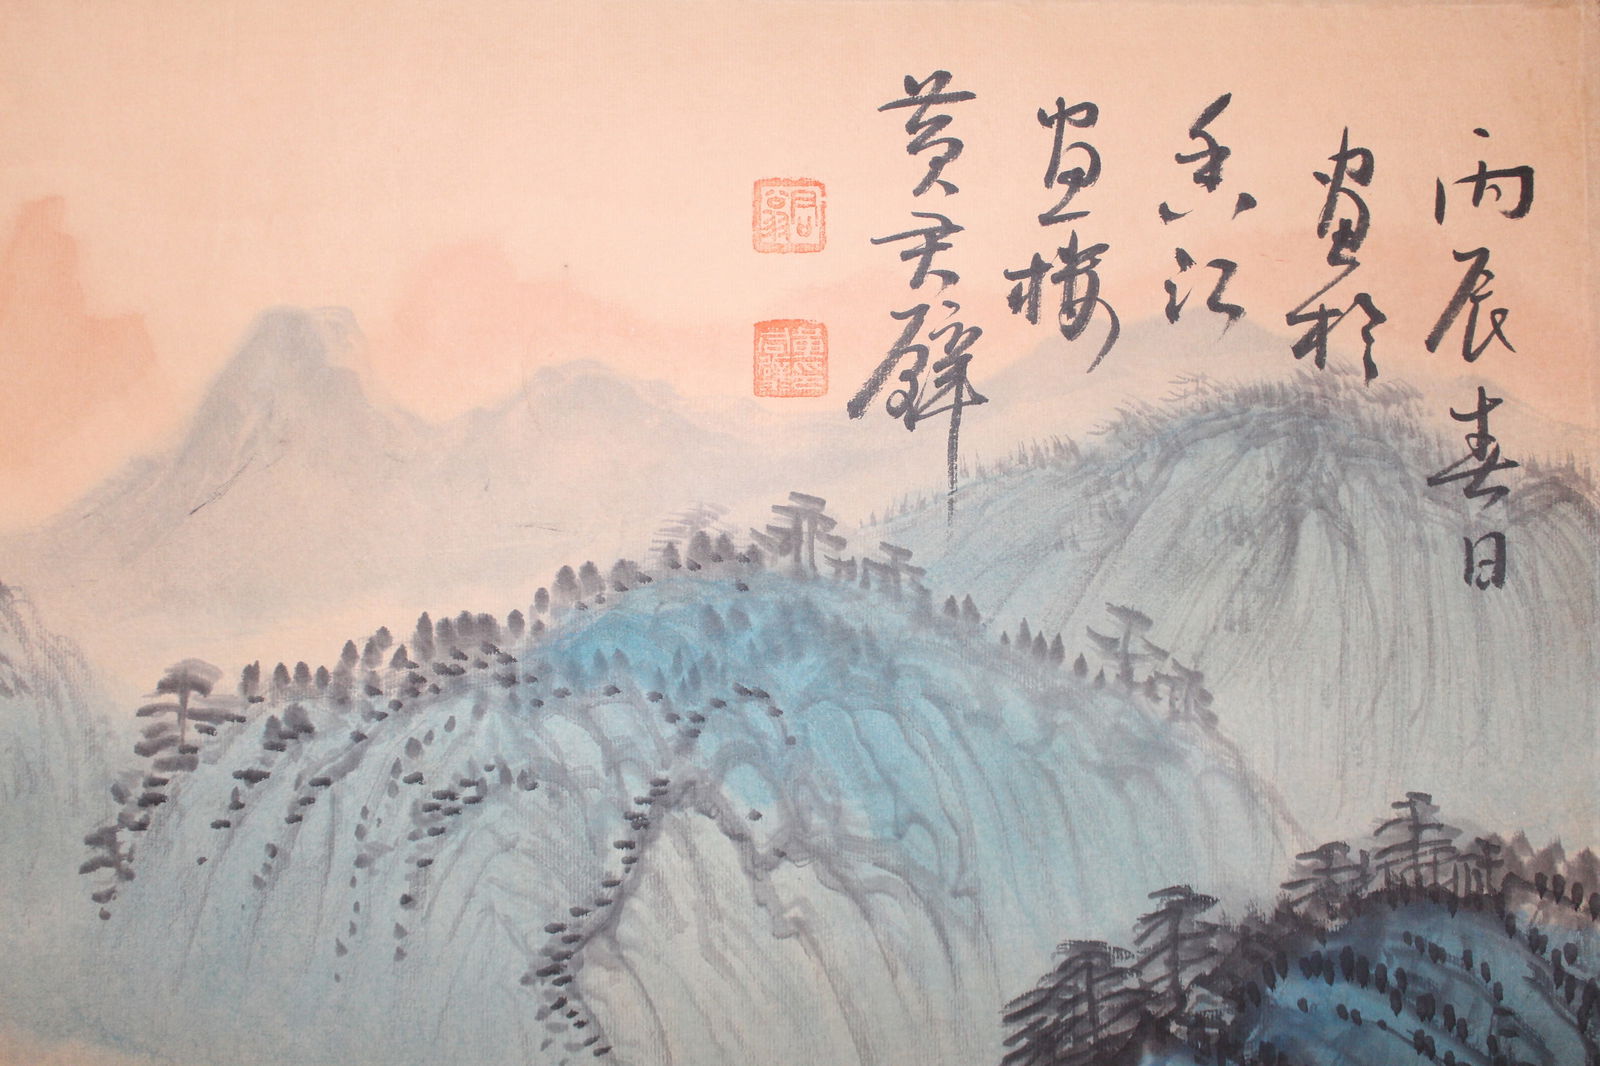 丙辰春日
画於
香江
画楼
黄君璧